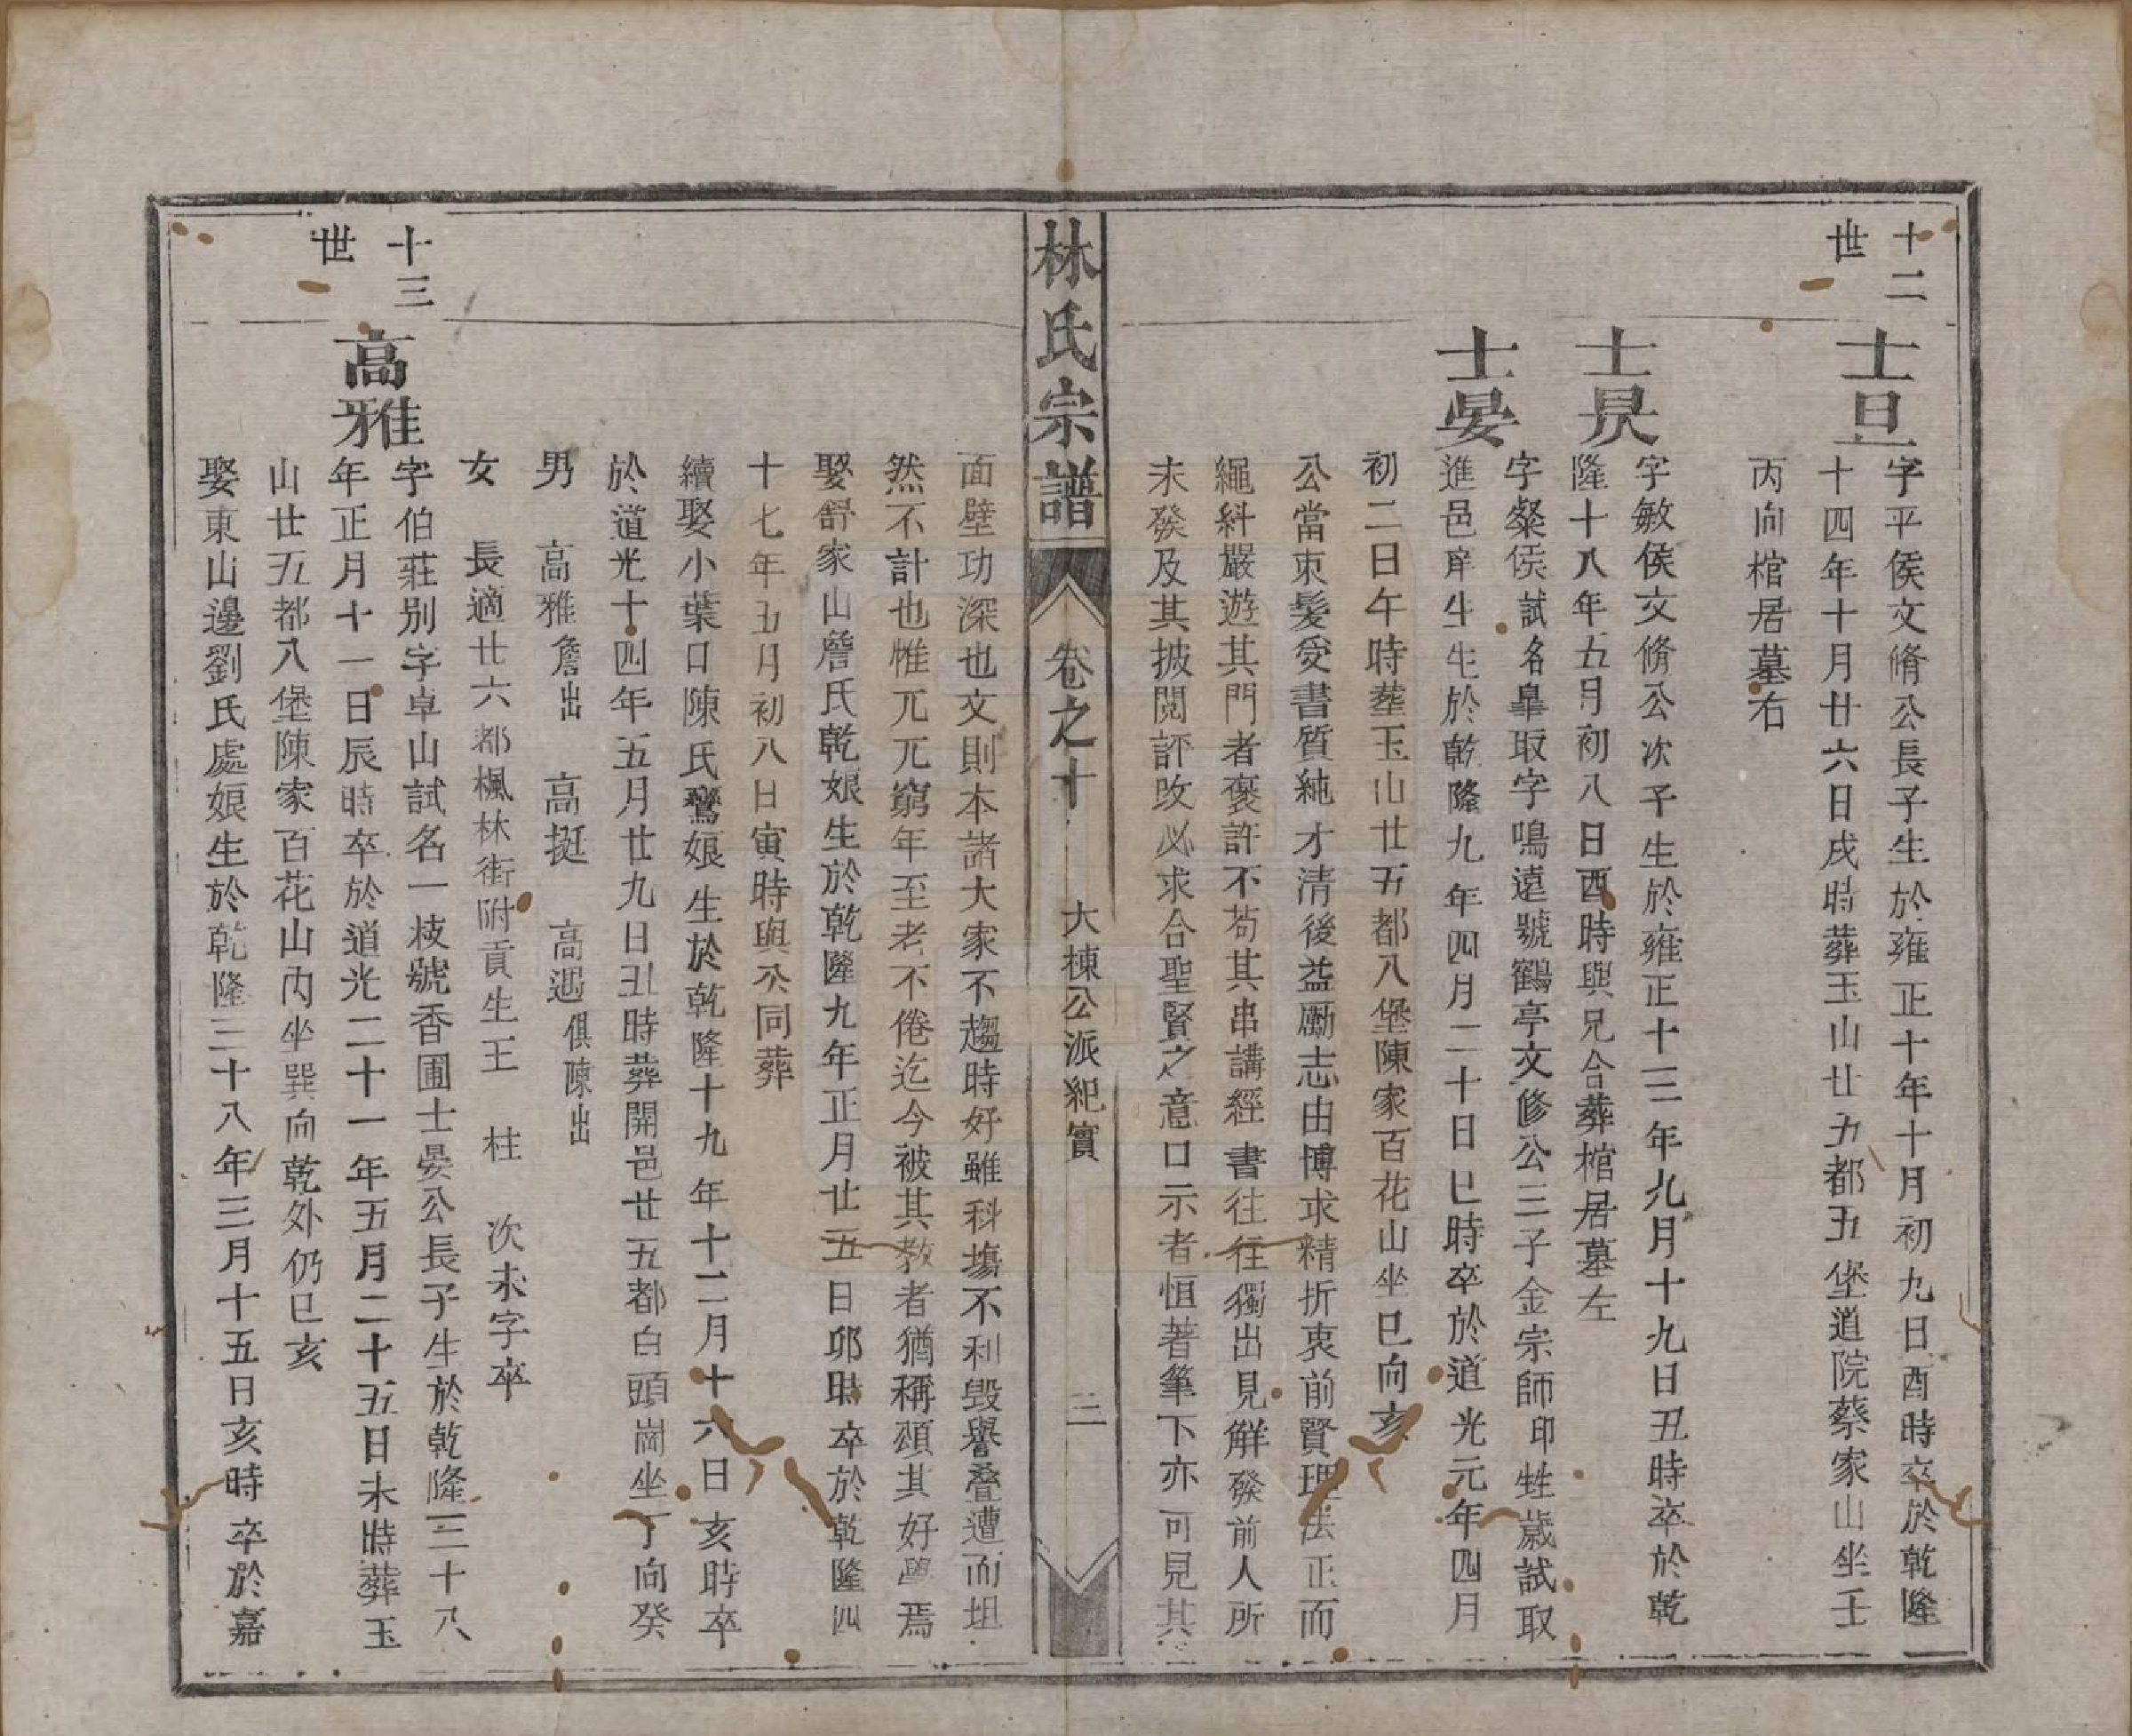 十二世
士旦
字平侯文脩公長子生於雍正十年十月初九日酉時卒於乾隆一
十四年十月廿六日戌時葬玉山廿五都五堡道院蔡家山坐壬一
丙向棺居墓右
士昃
字敏侯文脩公次子生於雍正十三年九月十九日丑時卒於乾
隆十八年五月初八日酉時與兄合葬棺居墓左
士晏
字粲侯試名臯取字鳴遠號鶴亭文修公三子金宗師印甡歲試取
進邑庠生生於乾隆九年四月二十日巳時卒於道光元年四月
初二日午時葬玉山廿五都八堡陳家百花山坐巳向亥
公當束髪受書質純才清後益勵志由博求精折衷前賢理法正而
繩糾嚴遊其門者褒許不苟其串講經書往往獨出見解發前人所
未發及其披閱評改必求合聖賢之意口示者恒著筆下亦可見其
林氏宗譜 卷之十 大棟公派紀實 三
面壁功深也文則本諸大家不趨時好雖科塲不利毁譽叠遭而坦
然不計也惟兀兀窮年至老不倦迄今被其教者猶稱頌其好學焉
娶舒家山詹氏乾娘生於乾隆九年正月廿五日卯時卒於乾隆四
十七年五月初八日寅時與公同葬
續娶小葉口陳氏鸞娘生於乾隆十九年十二月十六日亥時卒
於道光十四年五月廿九日丑時葬開邑廿五都白頭崗坐丁向癸
男 高雅詹出 高挺 高遇俱陳出
女 長適廿六都楓林街附貢生王 柱 次未字卒
十三世
高雅
字伯莊別字卓山試名一枝號香圃士晏公長子生於乾隆三十八
年正月十一日辰時卒於道光二十一年五月二十五日未時葬玉
山廿五都八堡陳家百花山內坐巽向乾外仍巳亥
娶東山邊劉氏處娘生於乾隆三十八年三月十五日亥時卒於嘉